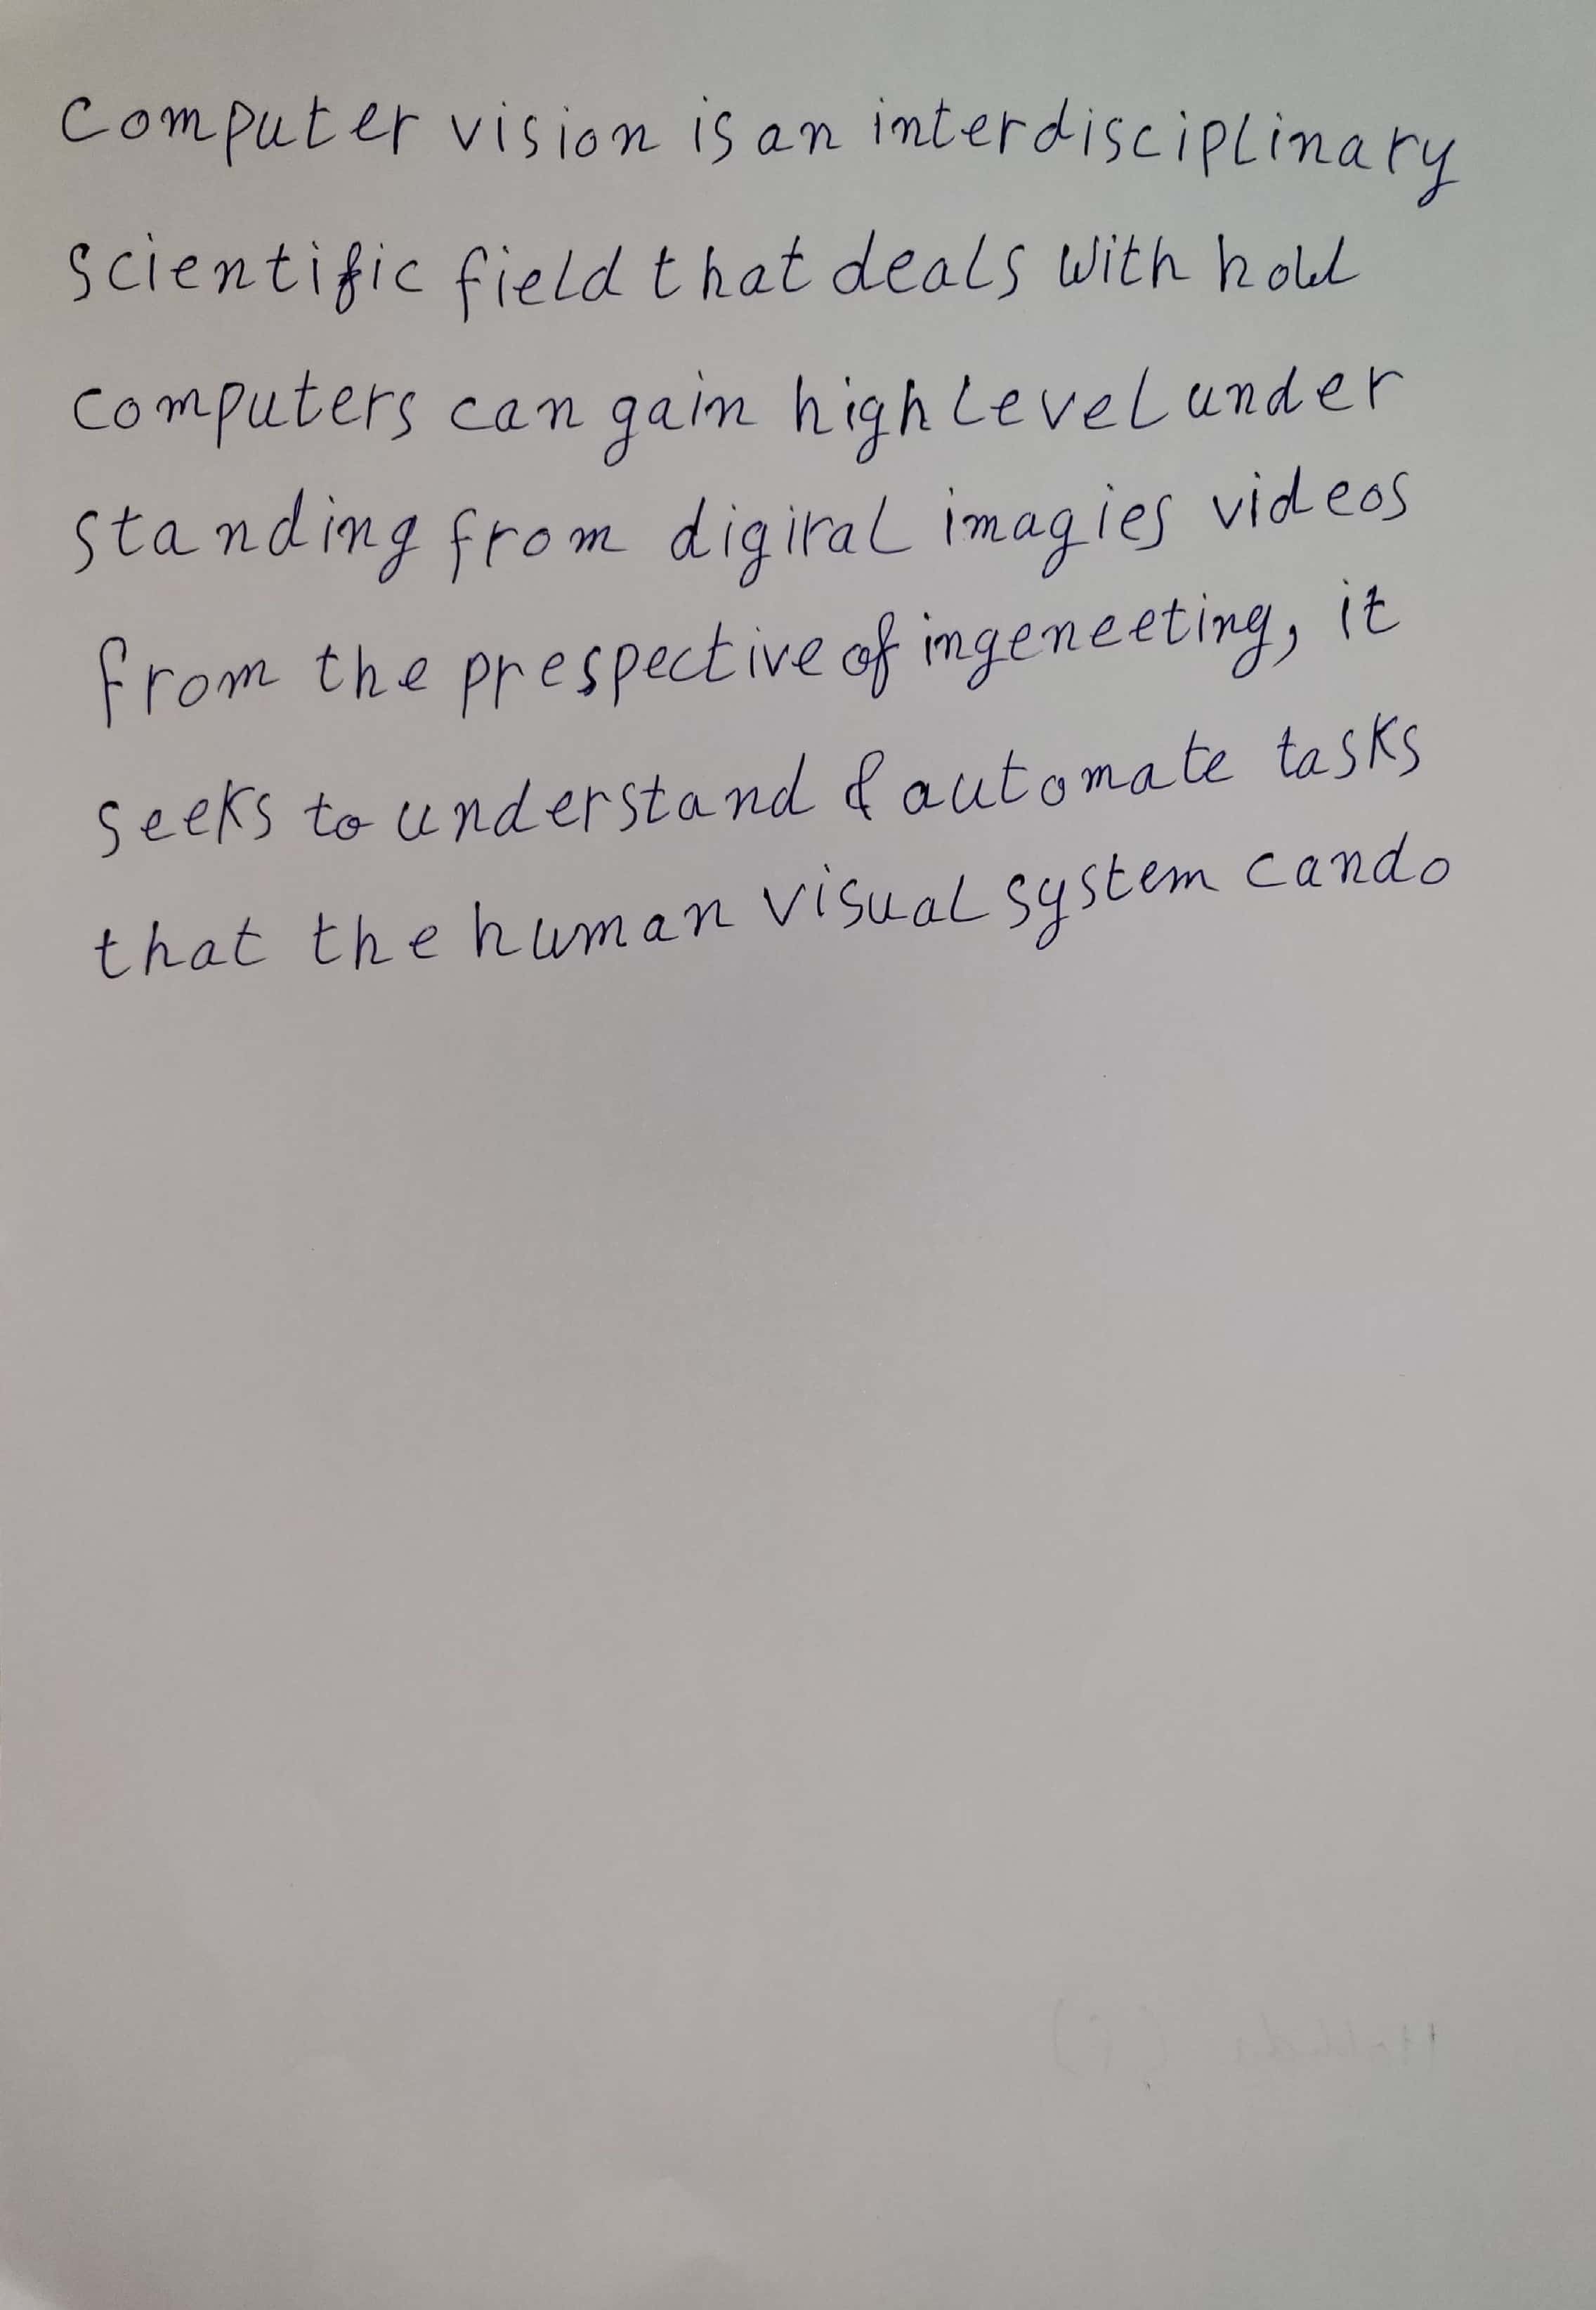 Computer vision is an interdisciplinary
scientific field that deals with how
computers can gain high level under
standing from digiral imagies videos
from the prespective of ingeneeting, it
seeks to understand & automate tasks
that the human visual system can do